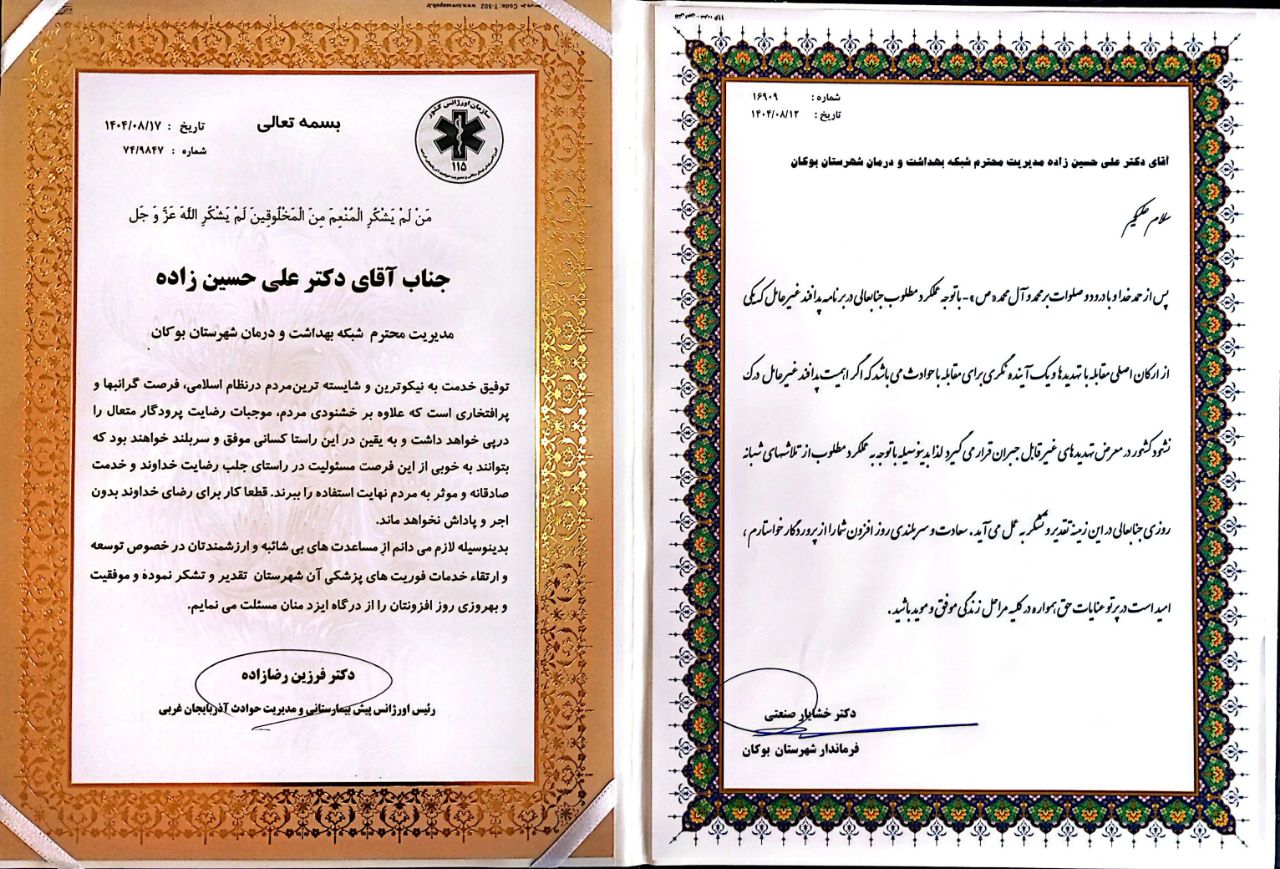 شماره : ۱۶۹۰۹
تاریخ : ۱۴۰۴/۰۸/۱۲
آقای دکتر علی حسین زاده مدیریت محترم شبکه بهداشت و درمان شهرستان بوکان
سلام علیکم
پس از حمد خدا و با درود و صلوات بر محمد و آل محمد «ص» - با توجه عملکرد مطلوب جنابعالی در برنامه پدافند غیر عامل که یکی
از ارکان اصلی مقابله با تهدیدها و یک آینده نگری برای مقابله با حوادث می باشد که اگر اهمیت پدافند غیر عامل درک
نشود کشور در معرض تهدیدهای غیر قابل جبران قرار می گیرد لذا بدینوسیله با توجه به عملکرد مطلوب از تلاشهای شبانه
روزی جنابعالی در این زمینه تقدیر و تشکر به عمل می آید . سعادت و سربلندی روز افزون شما را از پروردگار خواستارم ،
امید است در پرتو عنایات حق همواره در کلیه مراحل زندگی موفق و موید باشید .
دکتر خشایار صنعتی
فرماندار شهرستان بوکان
سازمان اورژانس کشور
۱۱۵
بسمه تعالی
تاریخ : ۱۴۰۴/۰۸/۱۷
شماره : ۷۴/۹۸۴۷
مَنْ لَمْ یَشْکُرِ الْمُنْعِمَ مِنَ الْمَخْلُوقِینَ لَمْ یَشْکُرِ اللَّهَ عَزَّ وَ جَل
جناب آقای دکتر علی حسین زاده
مدیریت محترم شبکه بهداشت و درمان شهرستان بوکان
توفیق خدمت به نیکوترین و شایسته ترین‌مردم درنظام اسلامی، فرصت گرانبها و
پرافتخاری است که علاوه بر خشنودی مردم، موجبات رضایت پرودگار متعال را
درپی خواهد داشت و به یقین در این راستا کسانی موفق و سربلند خواهند بود که
بتوانند به خوبی از این فرصت مسئولیت در راستای جلب رضایت خداوند و خدمت
صادقانه و موثر به مردم نهایت استفاده را ببرند. قطعا کار برای رضای خداوند بدون
اجر و پاداش نخواهد ماند.
بدینوسیله لازم می دانم از مساعدت های بی شائبه و ارزشمندتان در خصوص توسعه
و ارتقاء خدمات فوریت های پزشکی آن شهرستان تقدیر و تشکر نموده و موفقیت
و بهروزی روز افزونتان را از درگاه ایزد منان مسئلت می نمایم.
دکتر فرزین رضازاده
رئیس اورژانس پیش بیمارستانی و مدیریت حوادث آذربایجان غربی